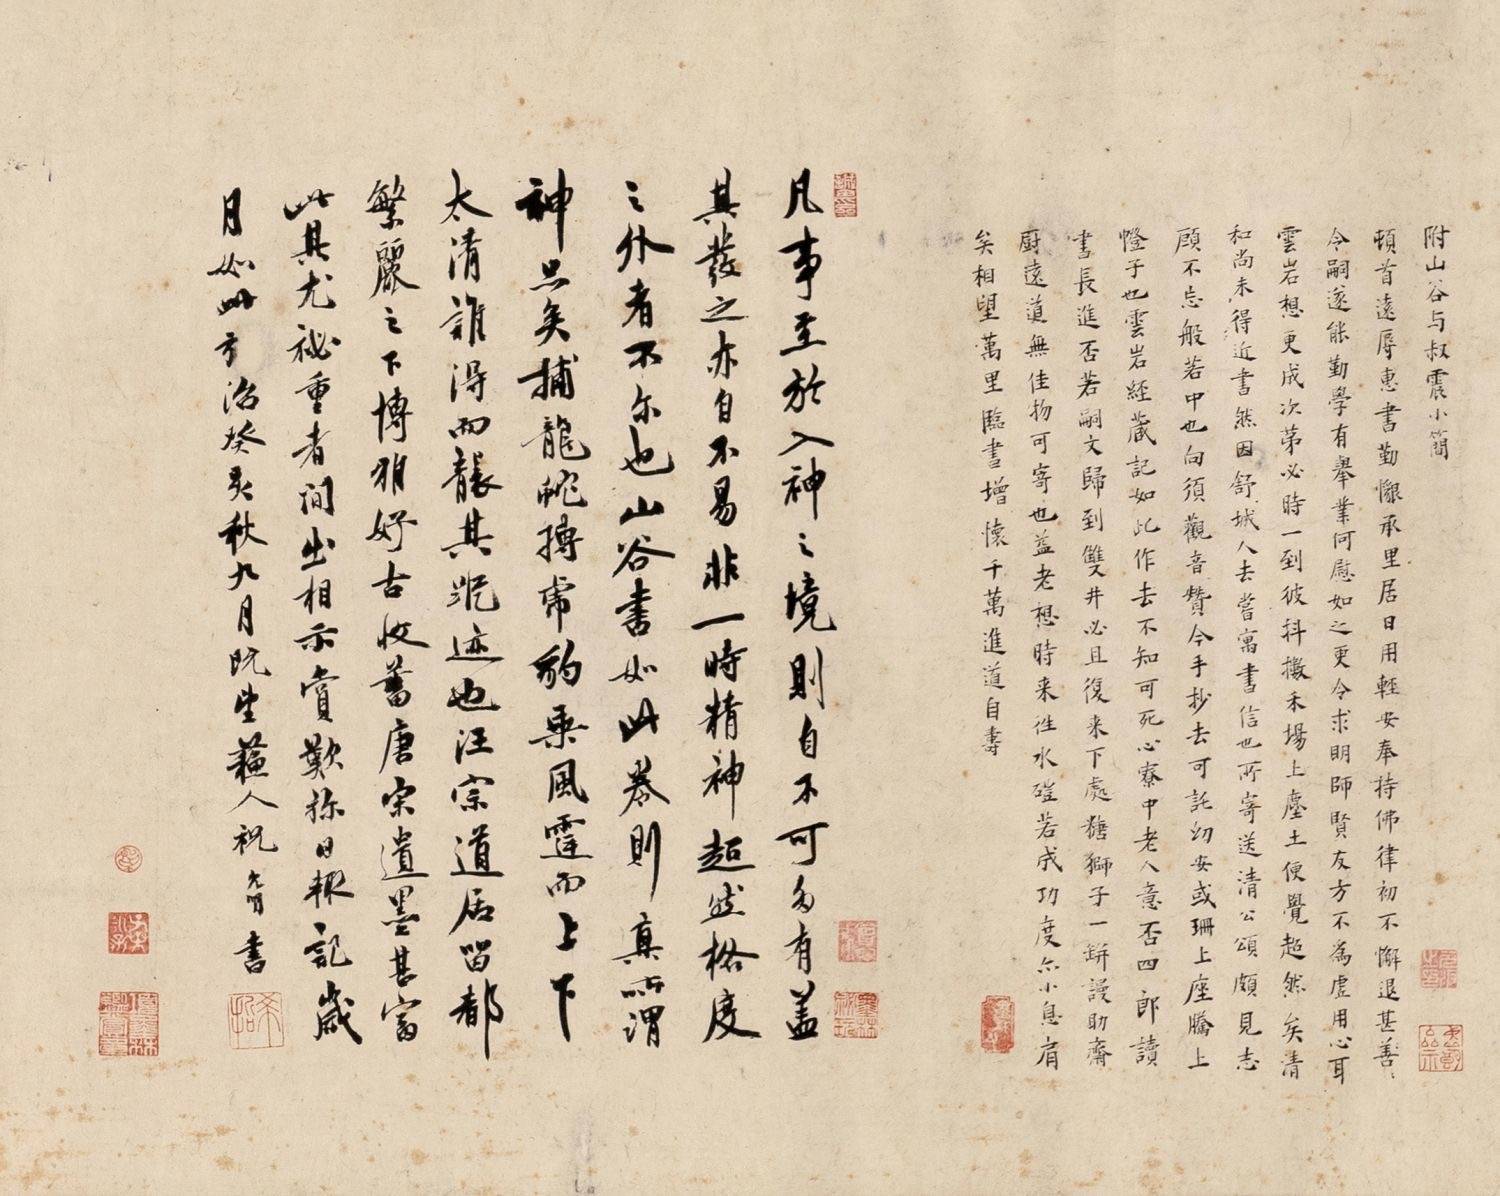 附山谷与叔震小簡
頓首遠辱惠書勤懃承里居日用輕安奉持佛律初不懈退甚善、
令嗣遂能勤學有舉業何慰如之更令求明師賢友方不為虛用心耳
雲岩想更成次第必時一到彼科撥禾場上塵土便覺超然矣清
和尚未得近書然因舒城人去嘗寓書信也所寄送清公頌頗見志
願不忘般若中也向須觀音贊今手抄去可託幼安或珊上座騰上
憕子也雲岩經藏記如此作去不知可死心寮中老人意否四郎讀
書長進否若嗣文歸到雙井必且復来下處糖獅子一缾謾助齋
厨遠道無佳物可寄也益老想時来往水磑若成功度亦小息肩
矣相望萬里臨書增懷千萬進道自壽
凡事至於入神之境則自不可多有蓋
其發之亦自不易非一時精神超然格度
之外者不尔也山谷書如此卷則真所謂
神品矣捕龍蛇搏虎豹乘風霆而上下
太清誰得而躡其蹤迹也汪宗道居留都
繁麗之下博雅好古收蓄唐宋遺墨甚富
此其尤祕重者间出相示賞歎弥日輒記歲
月如此弘治癸亥秋九月既望蘓人祝允明書